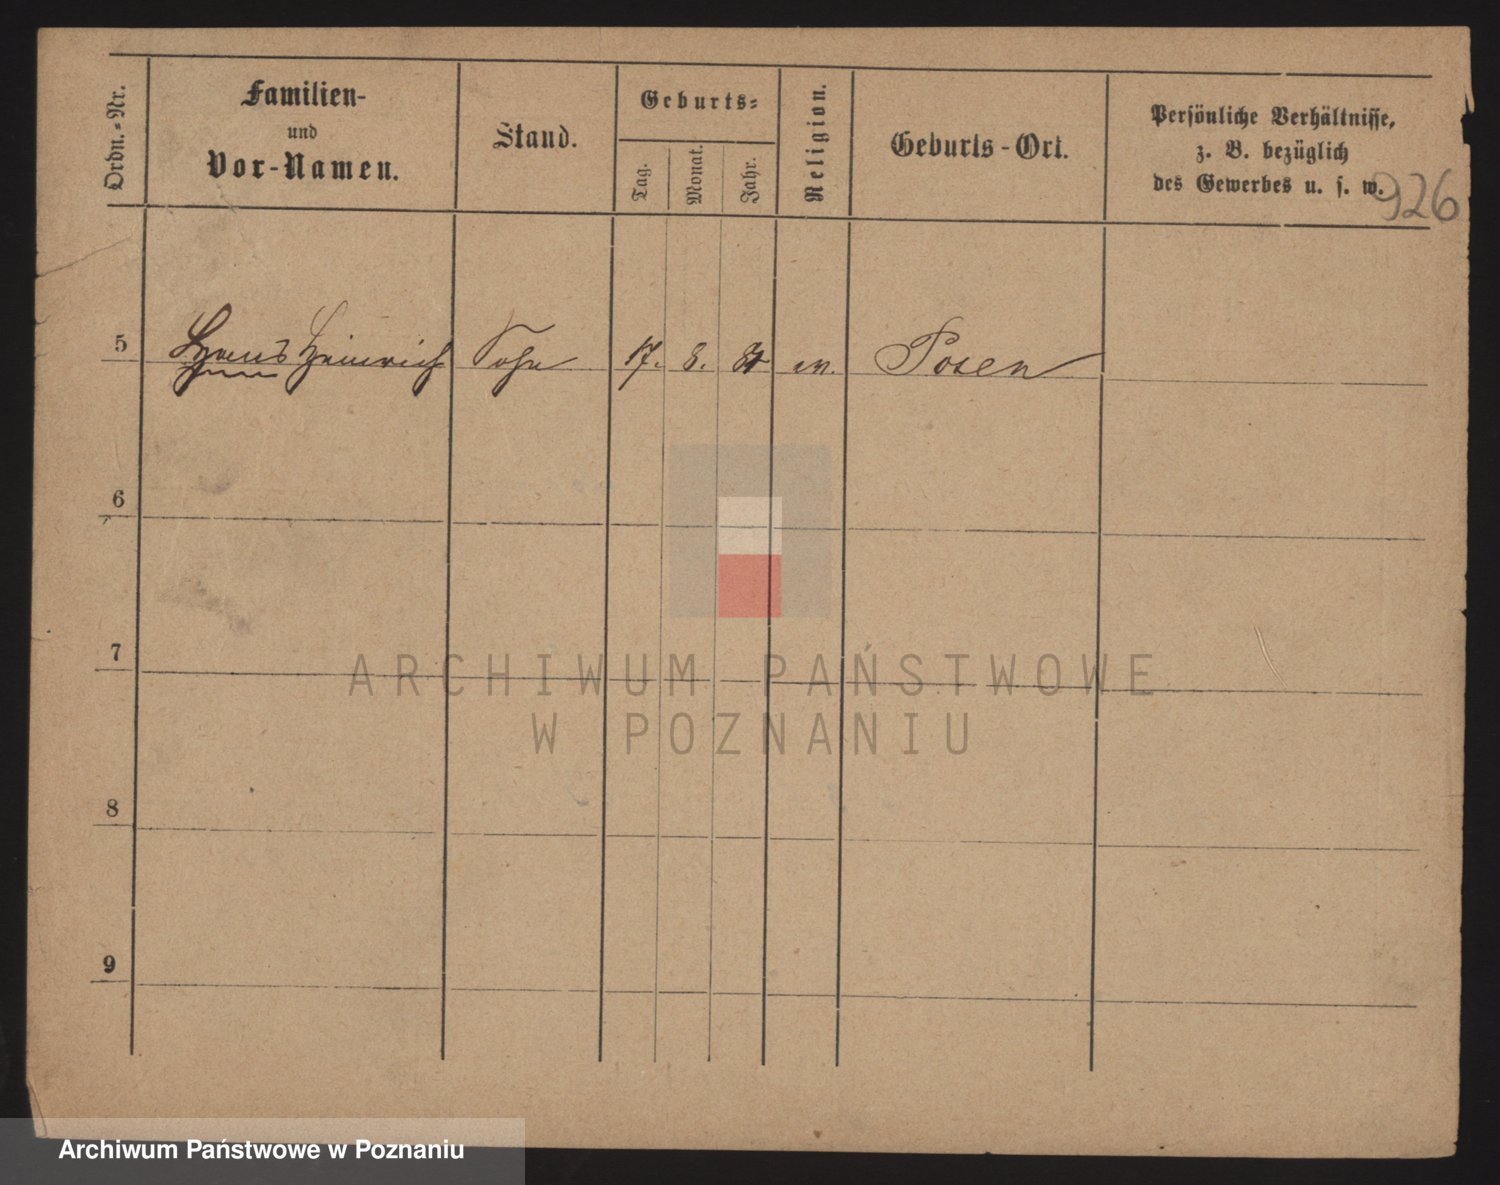 Ordn.-Nr.
Familien-
und
Vor-Namen.
Stand.
Geburts-
Tag.
Monat.
Jahr.
Religion.
Geburts-Ort.
Persönliche Verhältnisse,
z. B. bezüglich
des Gewerbes u. s. w.
926
5 Hans Heinrich Sohn 17. 8. Posen
6
7
8
9
ARCHIWUM PAŃSTWOWE
W POZNANIU
Archiwum Państwowe w Poznaniu